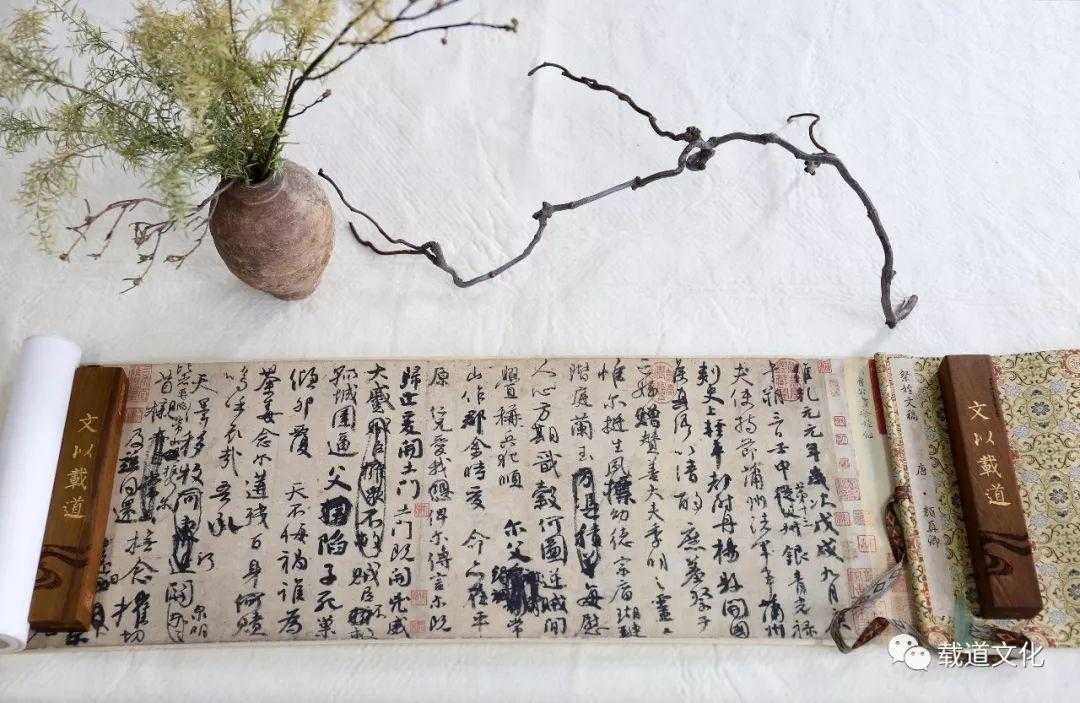 祭姪文稿 唐·顏真卿
文以載道
維乾元元年歲次戊戌九月
午朔三日壬申第十三叔銀青光祿
夫使持節蒲州諸軍事蒲州
刺史上輕車都尉丹楊縣開國
侯真卿以清酌庶羞祭于
亡姪贈贊善大夫季明之靈
惟爾挺生夙標幼德宗廟瑚璉
階庭蘭玉每慰
人心方期戩穀何圖逆賊間
釁稱兵犯順爾父竭誠常
山作郡余時受命亦在平
原仁兄愛我俾爾傳言爾既
歸止爰開土門土門既開兇威
大蹙賊臣不救
孤城圍逼父陷子死巢
傾卵覆天不悔禍誰為
荼毒念爾遘殘百身何贖
嗚乎哀哉吾承
天澤移牧河關泉明
首櫬
及茲同還撫念摧切
文以載道
载道文化